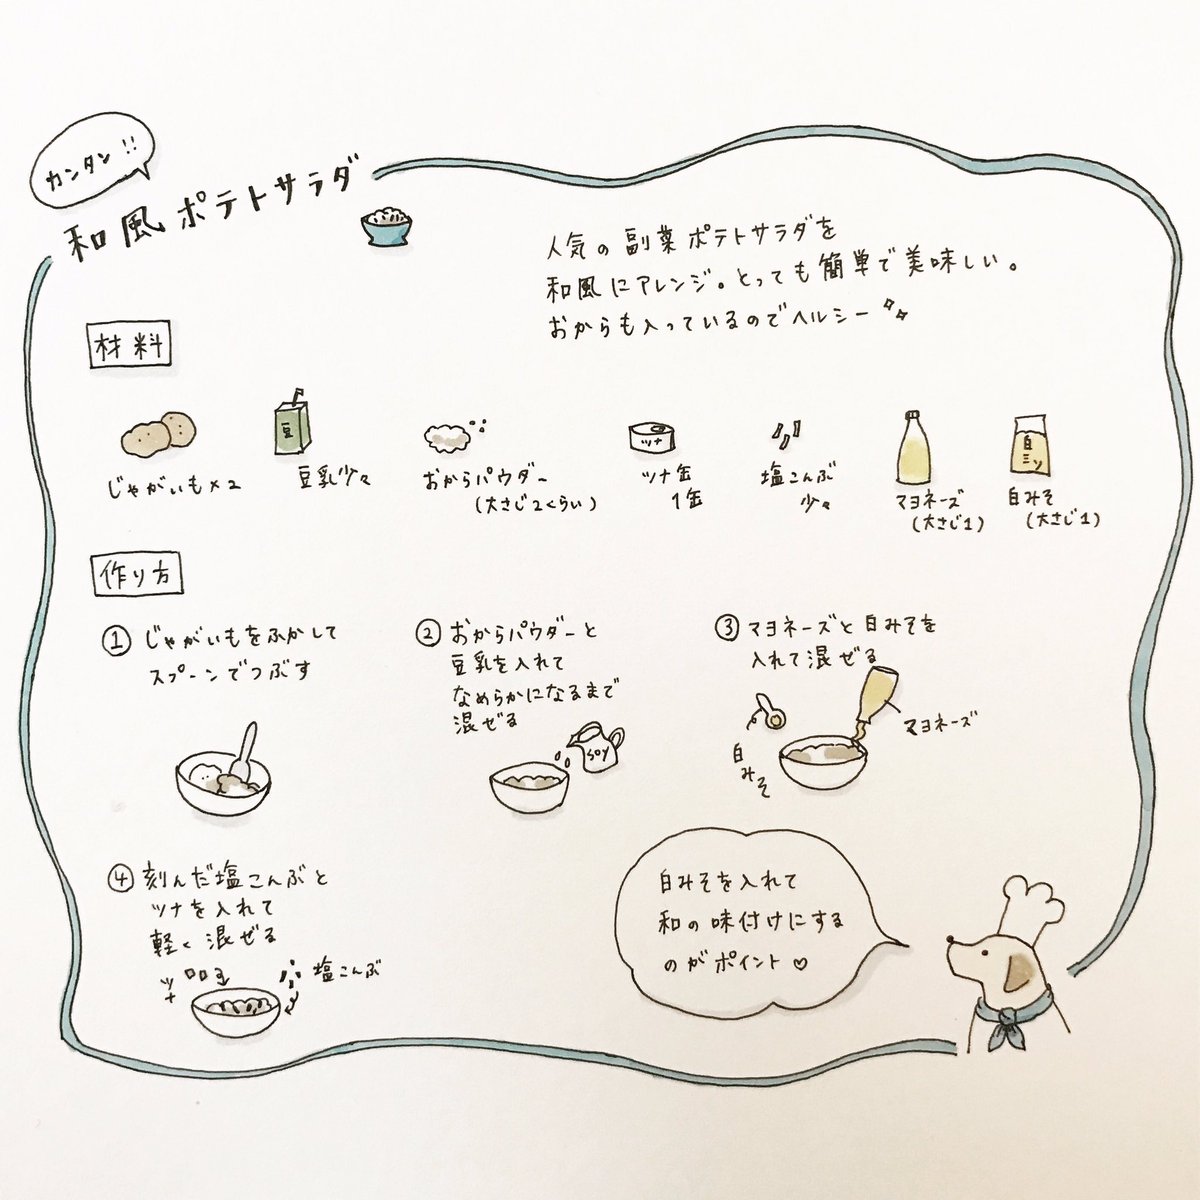 カンタン!!
和風ポテトサラダ
人気の副菜ポテトサラダを
和風にアレンジ。とっても簡単で美味しい。
おからも入っているのでヘルシー
材料
じゃがいも×2
豆
豆乳少々
おからパウダー
(大さじ2くらい)
ツナ
ツナ缶
1缶
塩こんぶ
少々
マヨネーズ
(大さじ1)
白ミソ
白みそ
(大さじ1)
作り方
① じゃがいもをふかして
スプーンでつぶす
② おからパウダーと
豆乳を入れて
なめらかになるまで
混ぜる
SOY
③ マヨネーズと白みそを
入れて混ぜる
マヨネーズ
白みそ
④ 刻んだ塩こんぶと
ツナを入れて
軽く混ぜる
ツナ
塩こんぶ
白みそを入れて
和の味付けにする
のがポイント♡